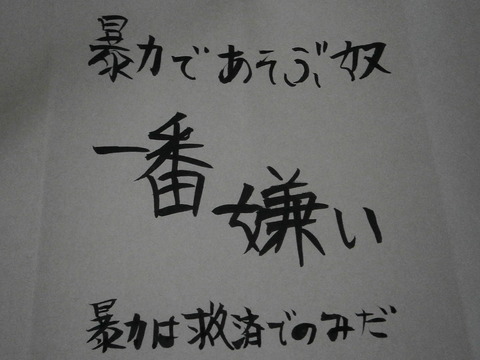 暴力であそぶ奴
一番
嫌い
暴力は救済でのみだ